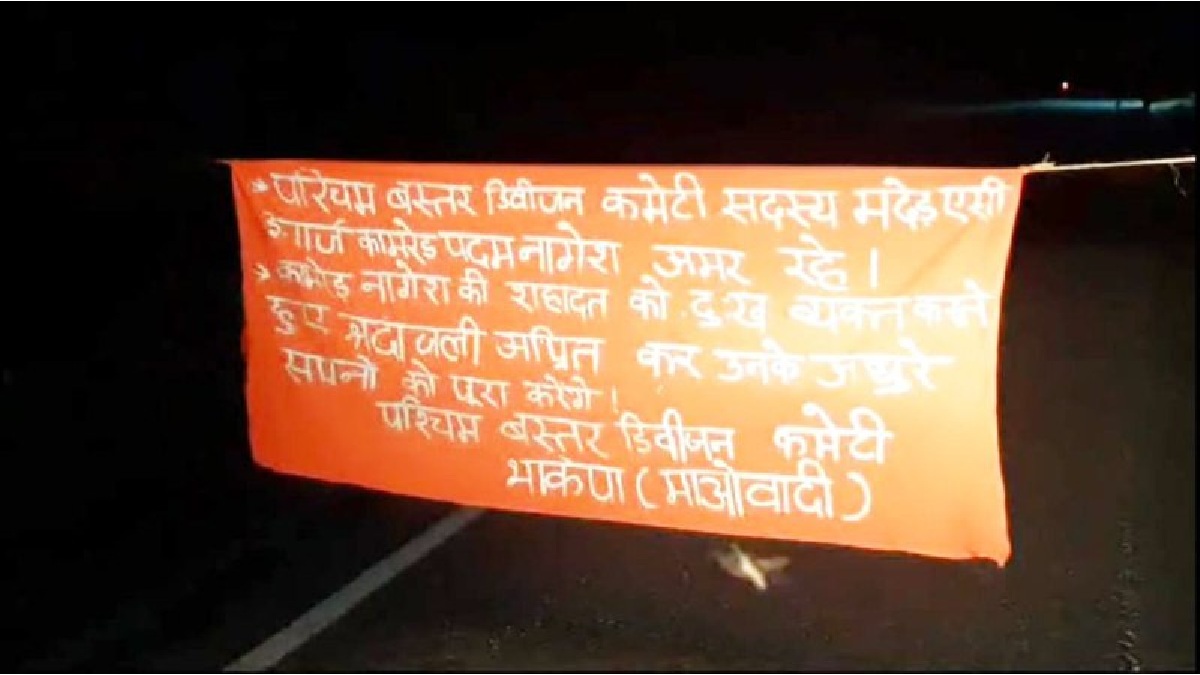 * पश्चिम बस्तर डिवीजन कमेटी सदस्य मद्देड़ एसी
इंचार्ज कामरेड पदम नागेश अमर रहे।
* कामरेड़ नागेश की शहादत को दुःख व्यक्त करते
हुए श्रदांजली अप्रित कर उनके अधुरे
सपनों को पूरा करेंगे!
पश्चिम बस्तर डिवीजन कमेटी
भाकपा (माओवादी)